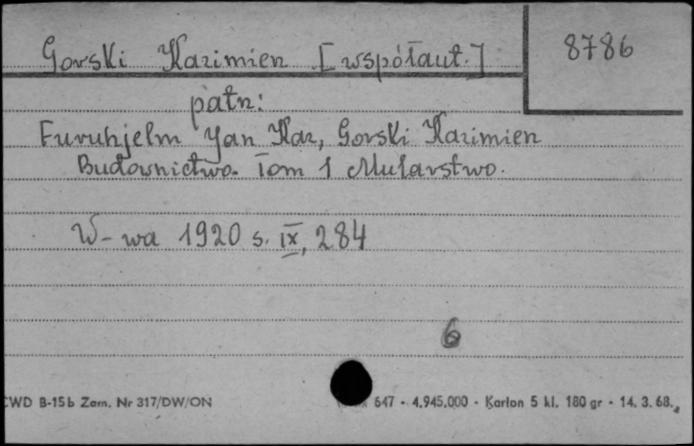 Gorski Kazimierz [współaut.]
8786
patrz:
Furuhjelm Jan Kar, Gorski Kazimierz
Budownictwo. Tom 1 Mularstwo.
W-wa 1920 s. IX, 284
6
CWD B-15b Zam. Nr 317/DW/ON
647 - 4.945.000 - Karton 5 kl. 180 gr - 14. 3. 68.